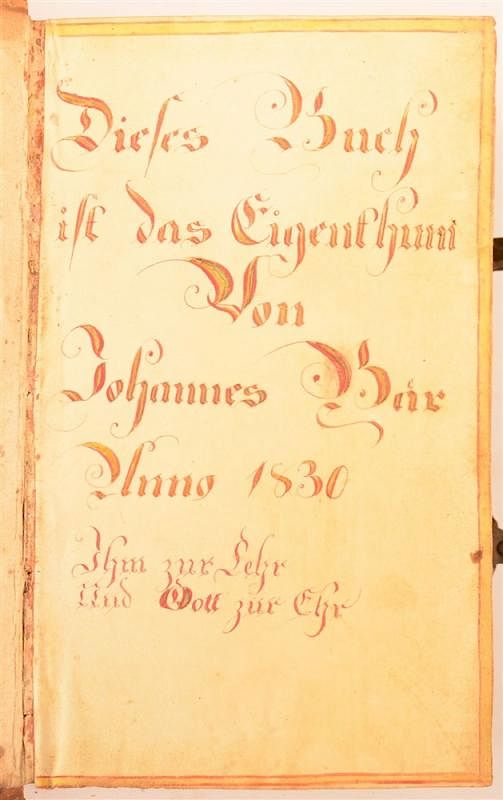 Dieses Buch
ist das Eigenthum
Von
Johannes Bär
Anno 1830
Ihm zur Lehr
Und Gott zur Ehr